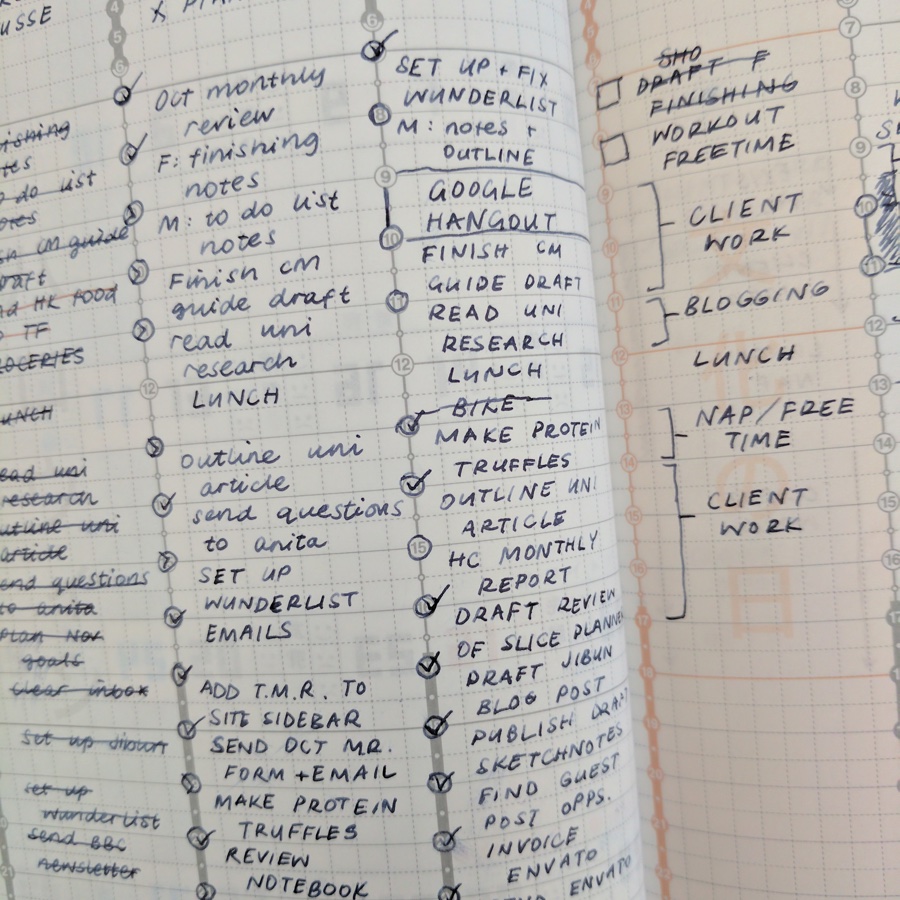 USSE
ishing
tes
do list
otes
sh CM guide
raft
nd HK FOOD
TF
ROCERIES
UNCH
ead uni
research
utline uni
article
end questions
to anita
Plan Nov
goals
clear inbox
set up Jibun
set up
wunderlist
send BBC
newsletter
4
5
6
Oct monthly
review
F: finishing
notes
M: to do list
notes
Finish CM
guide draft
read uni
research
12
LUNCH
outline uni
article
send questions
to anita
SET UP
WUNDERLIST
EMAILS
ADD T.M.R. TO
SITE SIDEBAR
SEND OCT MR.
FORM + EMAIL
MAKE PROTEIN
TRUFFLES
REVIEW
NOTEBOOK
6
SET UP + FIX
WUNDERLIST
8
M: notes +
OUTLINE
9
GOOGLE
HANGOUT
10
FINISH CM
GUIDE DRAFT
11
READ UNI
RESEARCH
12
LUNCH
BIKE
MAKE PROTEIN
TRUFFLES
OUTLINE UNI
ARTICLE
15
HC MONTHLY
REPORT
DRAFT REVIEW
OF SLICE PLANNER
DRAFT JIBUN
BLOG POST
PUBLISH DRAF
SKETCHNOTES
FIND GUEST
POST OPPS.
INVOICE
ENVATO
ENVATO
SHO
DRAFT F
FINISHING
WORKOUT
FREETIME
9
10
11
12
13
14
15
16
17
CLIENT
WORK
BLOGGING
LUNCH
NAP/FREE
TIME
CLIENT
WORK
7
8
9
10
11
12
13
14
15
16